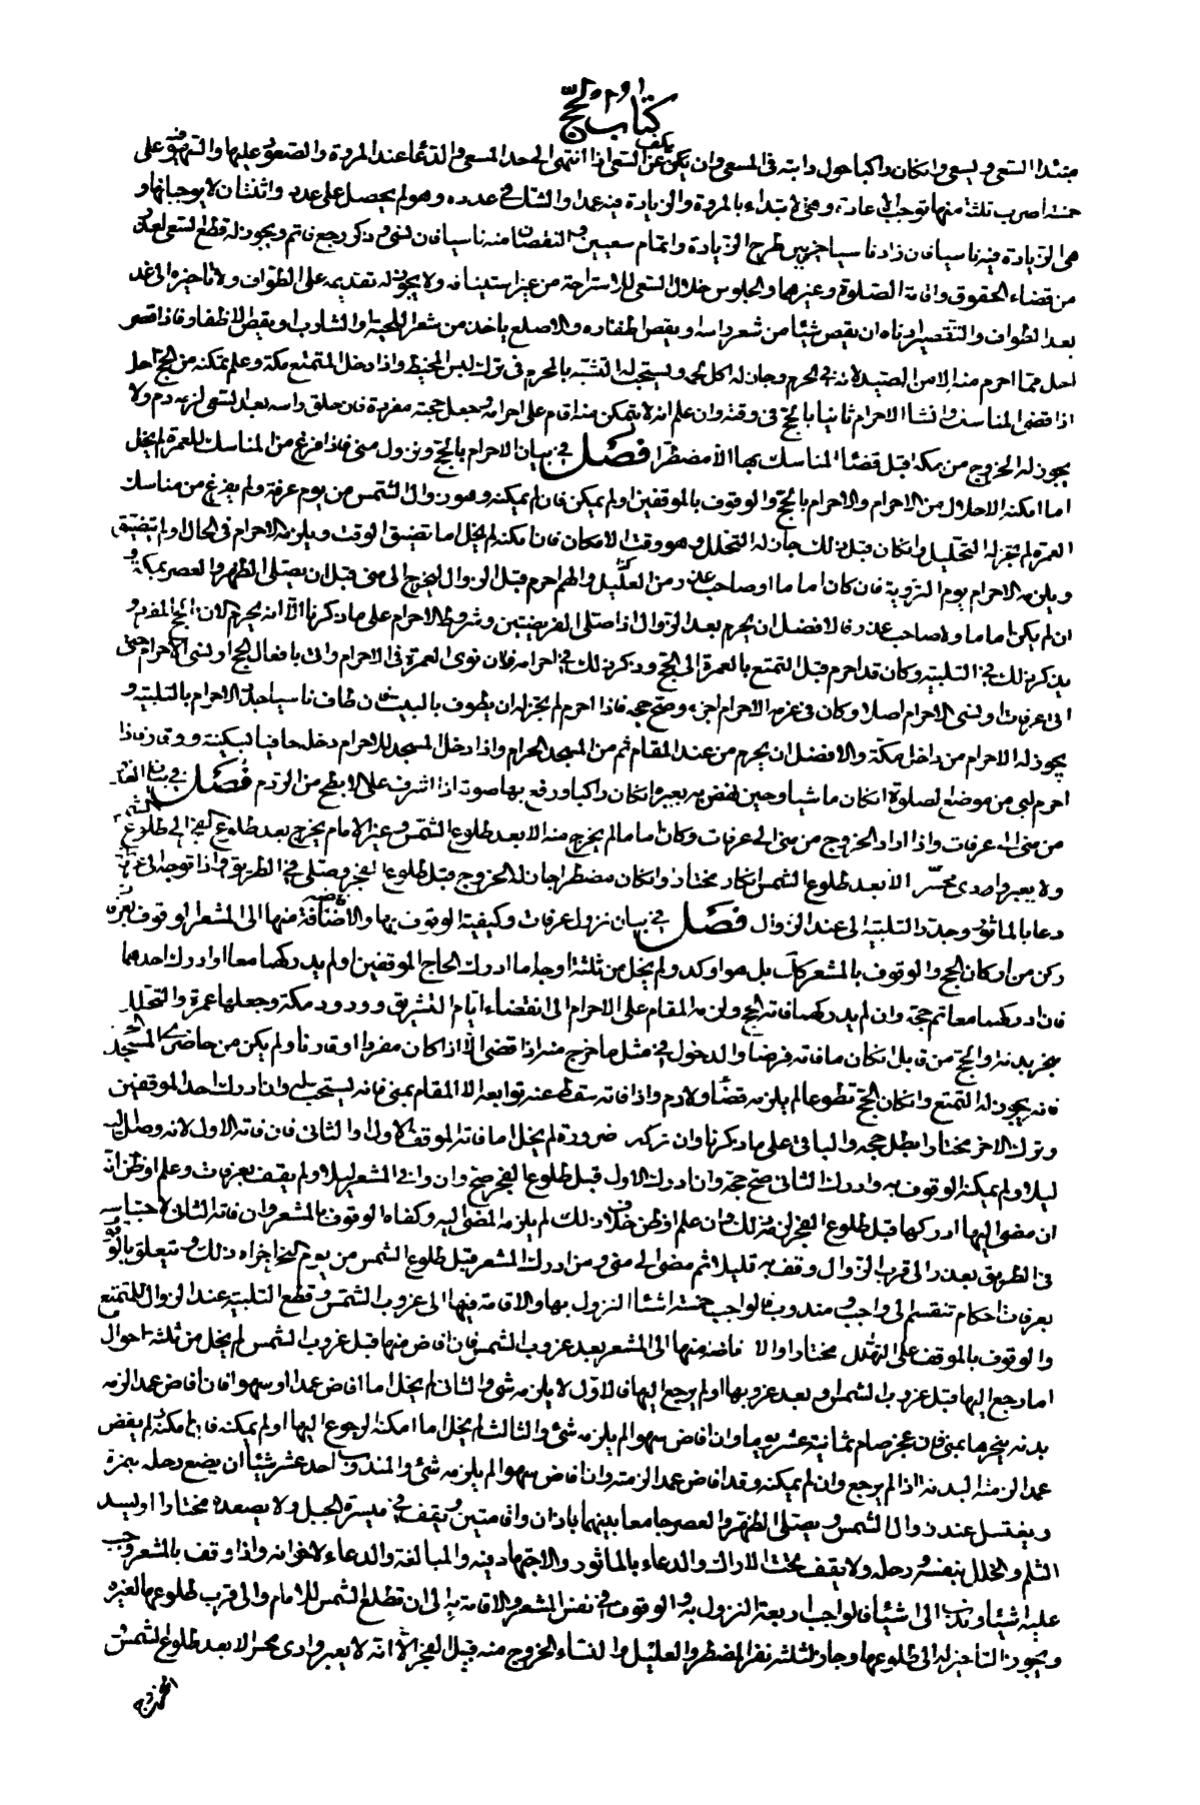 كتاب الحج
مبتدا السعى ويسعى وان كان راكبا حول دابته فى المسعى وان يكن عن السعى اذا انتهى الى حد المسعى والدعاء عند المروة والصعود عليها والترهيب على
خمسة اضرب ثلثة منها توجب الاعادة وهى الابتداء بالمروة والزيادة فيه عمدا والشك فى عدده وهو لم يحصل على عدد واثنتان لا يوجبانها و
هى الزيادة فيه ناسيا فان زاد ناسيا خير بين طرح الزيادة واتمام سعيين والنقصان منه ناسيا فان نسى وذكر رجع فاتم ويجوز له قطع السعى لعذر
من قضاء الحقوق واقامة الصلوة وغيرهما والجلوس خلال السعى للاستراحة من غير استيناف ولا يجوز له تقديمه على الطواف ولا تاخيره الى غد
بعد الطواف والتقصير ادناه ان يقص شيئا من شعر راسه او يقص اظفاره والاصلع ياخذ من شعر اللحية او الشارب او يقص الاظفار فاذا قصر
احل مما احرم منه الا من الصيد لانه فى الحرم وجاز له اكل لحمه ويستحب له التشبه بالمحرم فى ترك لبس المخيط واذا دخل المتمتع مكة وعلم تمكنه من الحج احل
اذا قضى المناسك وانشا الاحرام ثانيا بالحج فى وقته وان علم انه لا يتمكن منه اقام على احرامه وجعل حجته مفردة فان حلق راسه بعد السعى لزمه دم ولا
يجوز له الخروج من مكة قبل قضاء المناسك بها الا مضطرا فصل فى بيان الاحرام بالحج ونزول منى فاذا فرغ من المناسك للعمرة لم يخل
اما امكنه الاحلال من الاحرام والاحرام بالحج والوقوف بالموقفين او لم يمكن فان لم يمكنه وهو زوال الشمس من يوم عرفة ولم يفرغ من مناسك
العمرة لم يجز له التحليل وان كان قبل ذلك جاز له التحلل وهو وقت الامكان فان امكنه لم يخل اما تضيق الوقت ويلزمه الاحرام فى الحال او لم يتضيق
ويلزمه الاحرام يوم التروية فان كان اماما او صاحب عذر من العليل والهم احرم قبل الزوال ليخرج الى منى قبل ان يصلى الظهر والعصر بمكة و
ان لم يكن اماما ولا صاحب عذر فالافضل ان يحرم بعد الزوال اذا صلى الفريضتين وشروط الاحرام على ما ذكرنا الا انه يحرم الان بالحج المفرد و
يذكر ذلك فى التلبية وكان قد احرم قبل التمتع بالعمرة الى الحج وذكر ذلك فى احرامه فان نوى العمرة فى الاحرام واتى بافعال الحج او نسى الاحرام حتى
اتى عرفات او نسى الاحرام اصلا وكان فى عزمه الاحرام اجزء وصح حجه فاذا احرم لم يجز له ان يطوف بالبيت فان طاف ناسيا جدد الاحرام بالتلبية و
يجوز له الاحرام من داخل مكة والافضل ان يحرم من عند المقام ثم من المسجد الحرام واذا دخل المسجد للاحرام دخل حافيا بسكينة ووقار فاذا
احرم لبى من موضع الصلوة ان كان ماشيا وحين نهض به بعيره ان كان راكبا ورفع بها صوته اذا اشرف على الابطح من الردم فصل فى بيان
من منى الى عرفات واذا اراد الخروج من منى الى عرفات وكان اماما لم يخرج منه الا بعد طلوع الشمس وغير الامام يخرج بعد طلوع الفجر الى طلوع الشمس
ولا يعبر وادى محسر الا بعد طلوع الشمس ان كان مختارا وان كان مضطرا جاز له الخروج قبل طلوع الفجر وصلى فى الطريق واذا توجه الى
دعا بالماثور وجدد التلبية الى عند الزوال فصل فى بيان نزول عرفات وكيفية الوقوف بها والافاضة منها الى المشعر الوقوف بعرفات
ركن من اركان الحج والوقوف بالمشعر كذلك بل هو اوكد ولم يخل من ثلثة اوجه اما ادرك الحاج الموقفين او لم يدركهما معا او ادرك احدهما
فان ادركهما معا تم حجه وان لم يدركهما فاته الحج ولزمه المقام على الاحرام الى انقضاء ايام التشريق وورود مكة وجعلها عمرة والتحلل
بنحر بدنة والحج من قابل ان كان ما فاته فرضا والدخول فى مثل ما خرج منه اذا قضى الا اذا كان مفردا او قارنا ولم يكن من حاضرى المسجد الحرام
فانه يجوز له التمتع وان كان الحج تطوعا لم يلزمه قضاؤه ولا دم واذا فاته سقط عنه توابعه الا المقام بمنى فانه يستحب له وان ادرك احد الموقفين
وترك الاخر مختارا بطل حجه والباقى على ما ذكرنا وان تركه ضرورة لم يخل اما فاته الموقف الاول او الثانى فان فاته الاول لانه وصل اليه
ليلا ولم يمكنه الوقوف به وادرك الثانى صح حجه وان ادرك الاول قبل طلوع الفجر صح وان وافى المشعر ليلا ولم يقف بعرفات وعلم او ظن انه
ان مضى اليها ادركها قبل طلوع الفجر لزمه ذلك وان علم او ظن خلاف ذلك لم يلزمه المضى اليه وكفاه الوقوف بالمشعر وان فاته الثانى لاحتباسه
فى الطريق بعذر الى قرب الزوال وقف به قليلا ثم مضى الى منى ومن ادرك المشعر قبل طلوع الشمس من يوم النحر اجزاه ذلك ويتعلق بالوقوف
بعرفات احكام تنقسم الى واجب ومندوب فالواجب خمسة اشياء النزول بها والاقامة فيها الى غروب الشمس وقطع التلبية عند الزوال للمتمتع
والوقوف بالموقف على التهلل مختارا والافاضة منها الى المشعر بعد غروب الشمس فان افاض منها قبل غروب الشمس لم يخل من ثلثة احوال
اما رجع اليها قبل غروب الشمس او بعد غروبها او لم يرجع اليها فالاول لا يلزمه شئ والثانى لم يخل اما افاض عمدا او سهوا فان افاض عمدا لزمه
بدنه ينحرها بمنى فان عجز صام ثمانية عشر يوما وان افاض سهوا لم يلزمه شئ والثالث لم يخل اما امكنه الرجوع اليها او لم يمكنه فان امكنه ولم يفض
عمدا لزمته البدنة اذا لم يرجع وان لم يمكنه وقد افاض عمدا لزمته وان افاض سهوا لم يلزمه شئ والمندوب احد عشر شيئا ان يضع رحله بنمرة
ويغتسل عند زوال الشمس ويصلى الظهر والعصر جامعا بينهما باذان واقامتين ويقف فى ميسرة الجبل ولا يصعده مختارا او ليسد
الثلم والخلل بنفسه ورحله ولا يقف تحت الاراك والدعاء بالماثور والاجتهاد فيه والمبالغة والدعاء لاخوانه واذا وقف بالمشعر وجب
عليه شيئا وندب الى اشياء فالواجب اربعة النزول به والوقوف فى نفس المشعر والاقامة به الى ان تطلع الشمس للامام والى قرب طلوعها لغيره
ويجوز التأخير له الى طلوعها وجاز لثلثة نفر المضطر والعليل والنساء الخروج منه قبل الفجر الا انه لا يعبر وادى محسر الا بعد طلوع الشمس